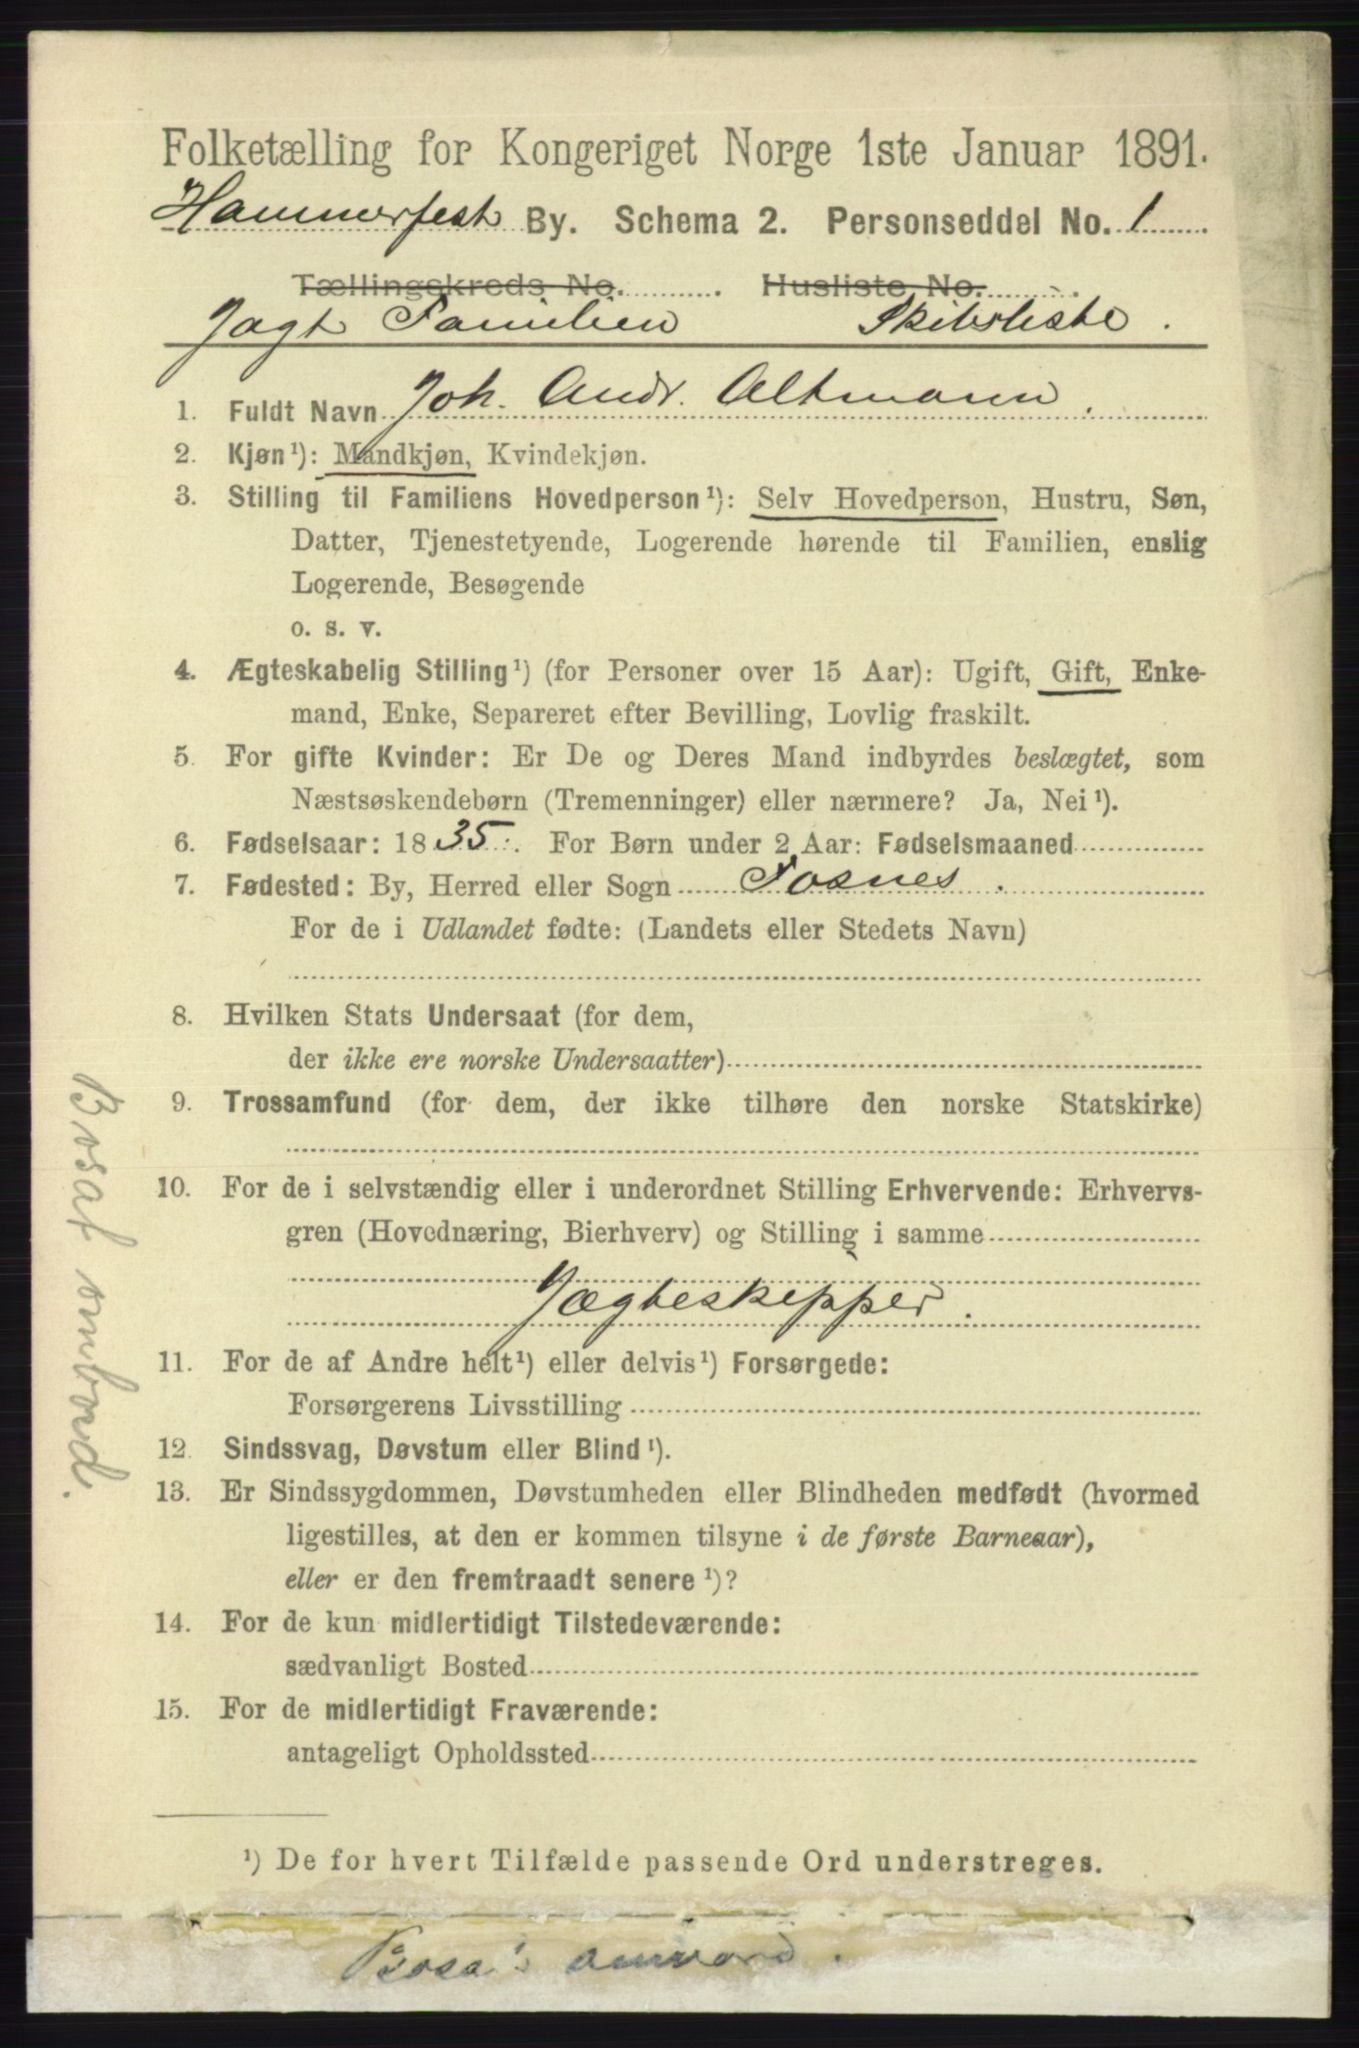 Folketælling for Kongeriget Norge 1ste Januar 1891.
Hammerfest By. Schema 2. Personseddel No. 1
Tællingskreds No. Husliste No.
Jagt Familien Skibsliste.
1. Fuldt Navn Joh. Andr. Altmann.
2. Kjøn ¹): Mandkjøn, Kvindekjøn.
3. Stilling til Familiens Hovedperson ¹): Selv Hovedperson, Hustru, Søn,
Datter, Tjenestetyende, Logerende hørende til Familien, enslig
Logerende, Besøgende
o. s. v.
4. Ægteskabelig Stilling ¹) (for Personer over 15 Aar): Ugift, Gift, Enke-
mand, Enke, Separeret efter Bevilling, Lovlig fraskilt.
5. For gifte Kvinder: Er De og Deres Mand indbyrdes beslægtet, som
Næstsøskendebørn (Tremenninger) eller nærmere? Ja, Nei ¹).
6. Fødselsaar: 1835. For Børn under 2 Aar: Fødselsmaaned
7. Fødested: By, Herred eller Sogn Fosnes.
For de i Udlandet fødte: (Landets eller Stedets Navn)
8. Hvilken Stats Undersaat (for dem,
der ikke ere norske Undersaatter)
9. Trossamfund (for dem, der ikke tilhøre den norske Statskirke)
10. For de i selvstændig eller i underordnet Stilling Erhvervende: Erhvervs-
gren (Hovednæring, Bierhverv) og Stilling i samme
Jægteskipper.
11. For de af Andre helt ¹) eller delvis ¹) Forsørgede:
Forsørgerens Livsstilling
12. Sindssvag, Døvstum eller Blind ¹).
13. Er Sindssygdommen, Døvstumheden eller Blindheden medfødt (hvormed
ligestilles, at den er kommen tilsyne i de første Barneaar),
eller er den fremtraadt senere ¹)?
14. For de kun midlertidigt Tilstedeværende:
sædvanligt Bosted
15. For de midlertidigt Fraværende:
antageligt Opholdssted
¹) De for hvert Tilfælde passende Ord understreges.
Bosat ombord.